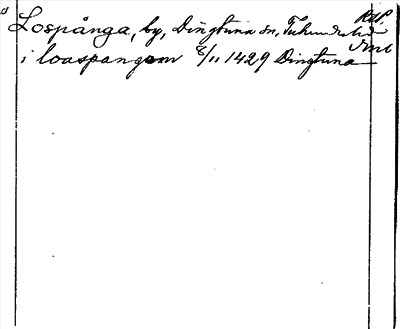 RAP.
Lospånga, by, Dingtuna sn, Tuhundra hd
i loaspangom 8/11 1429 Dingtuna